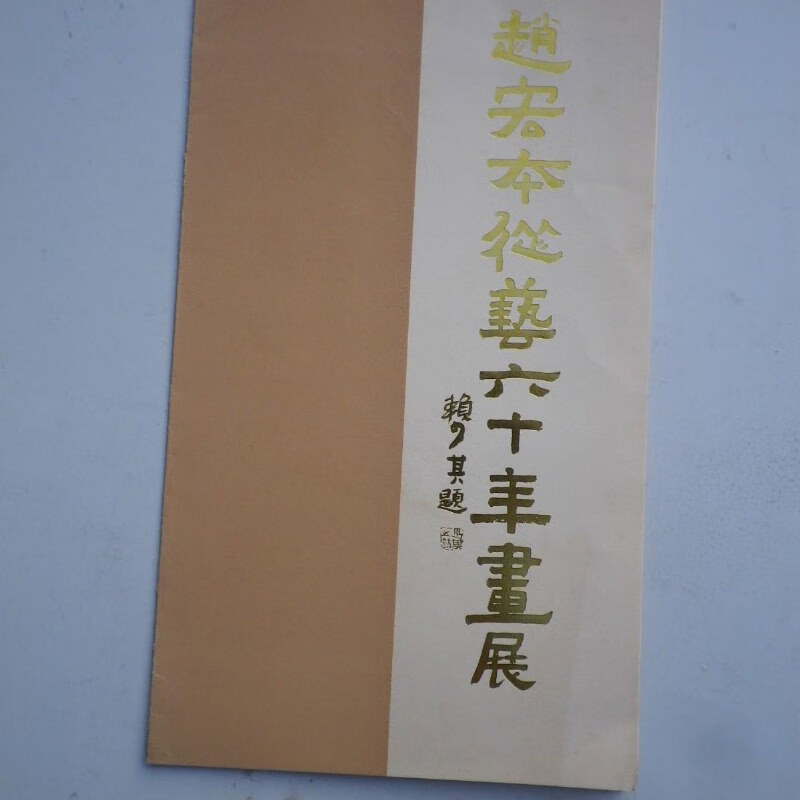 趙宏本從藝六十年畫展
賴少其題